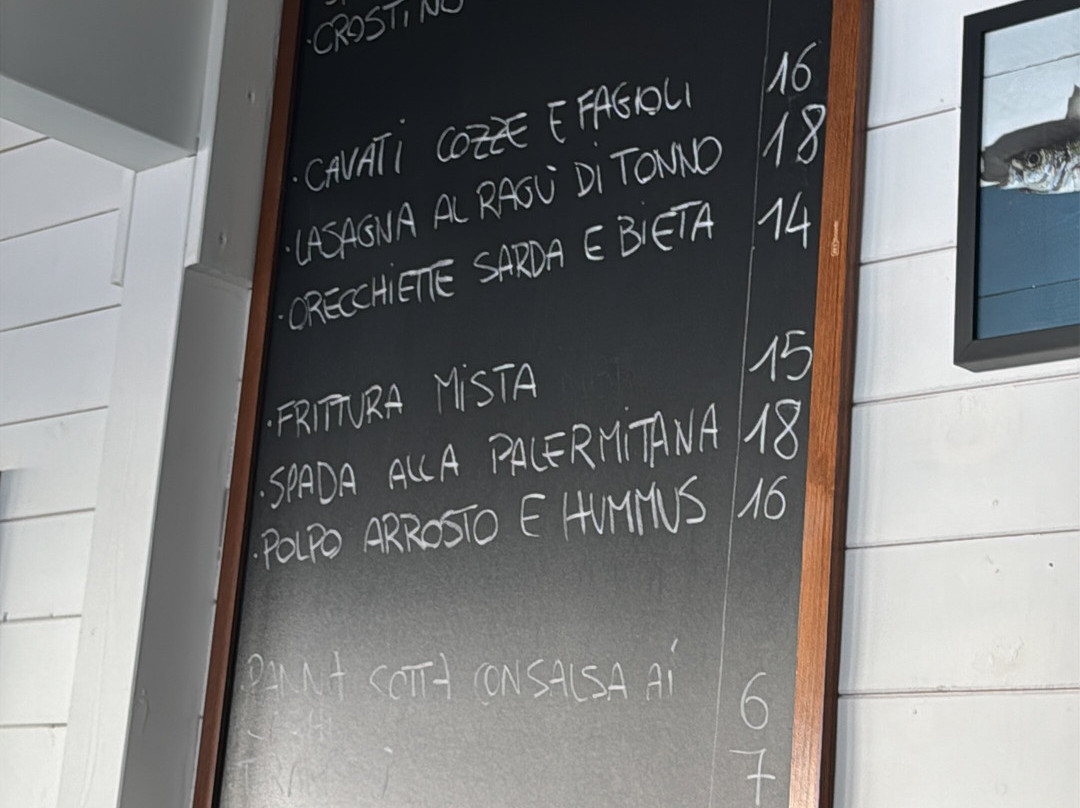 · CROSTINO
· CAVATI COZZE E FAGIOLI 16
· LASAGNA AL RAGÙ DI TONNO 18
· ORECCHIETTE SARDA E BIETA 14
· FRITTURA MISTA 15
· SPADA ALLA PALERMITANA 18
· POLPO ARROSTO E HUMMUS 16
· PANNA COTTA CON SALSA AI 6
7